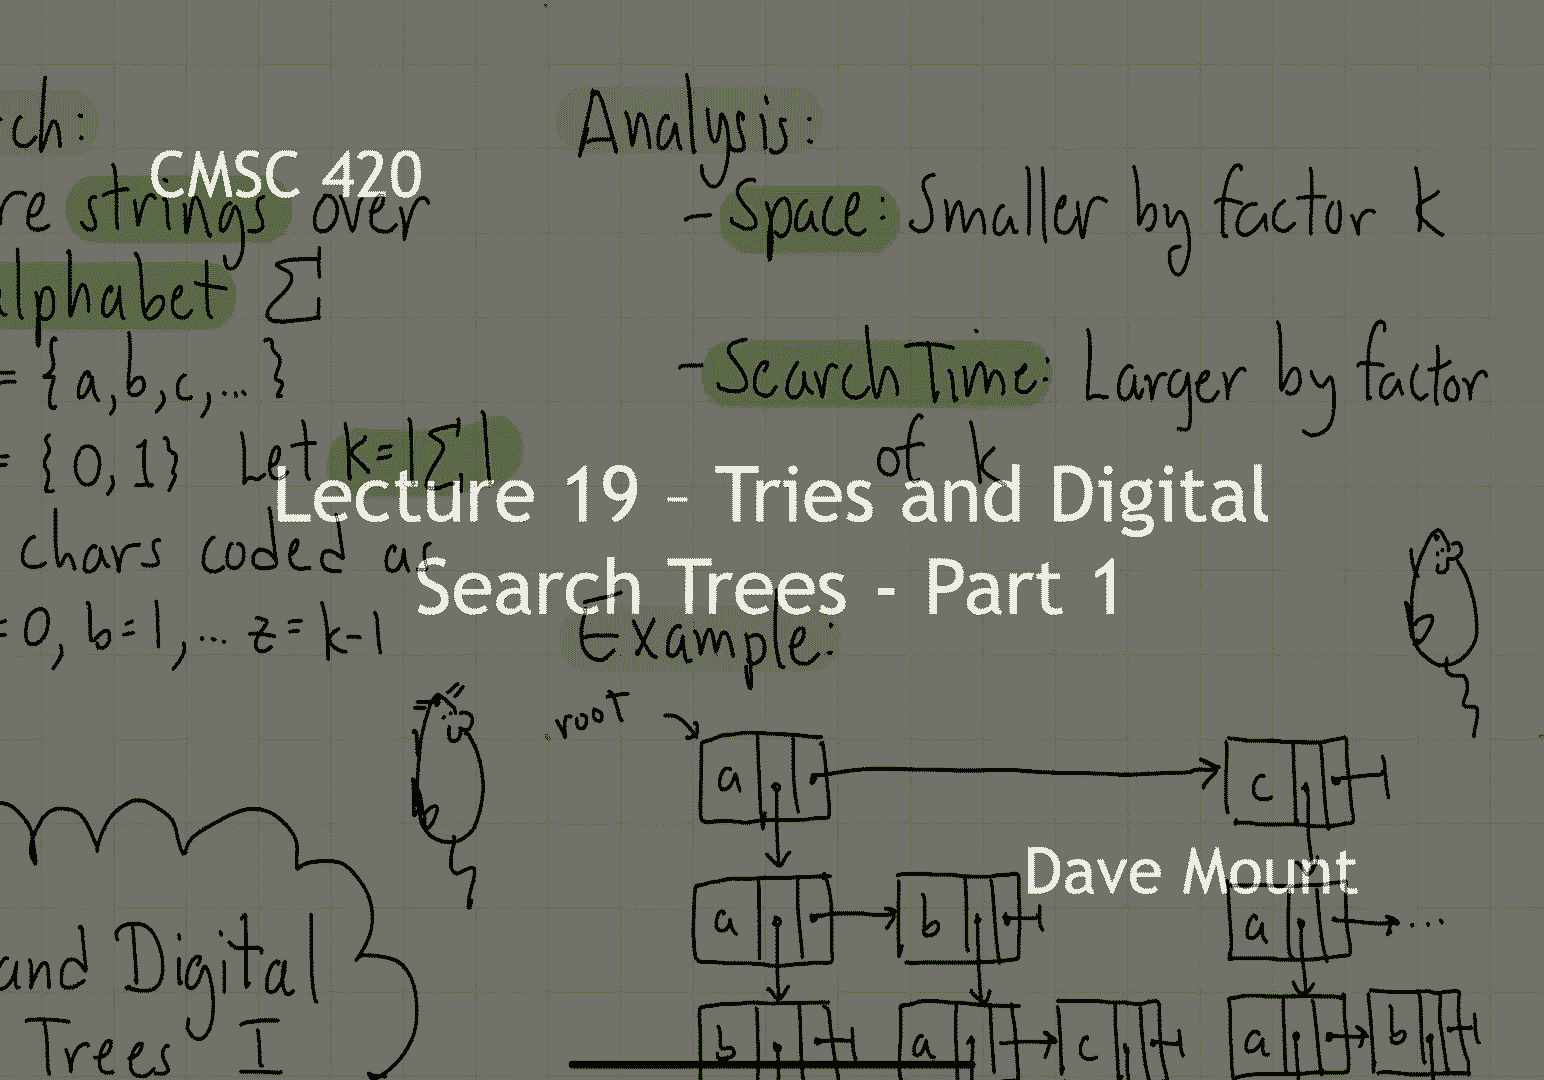 CMSC 420
Lecture 19 – Tries and Digital
Search Trees - Part 1
Dave Mount
ch:
re strings over
alphabet Σ
= {a,b,c,...}
= {0,1} Let k=|Σ|
chars coded as
=0, b=1,... z=k-1
and Digital
Trees I
Analysis:
- Space: Smaller by factor k
- Search Time: Larger by factor
of k
Example:
root
a c
a b a ...
b a c a b